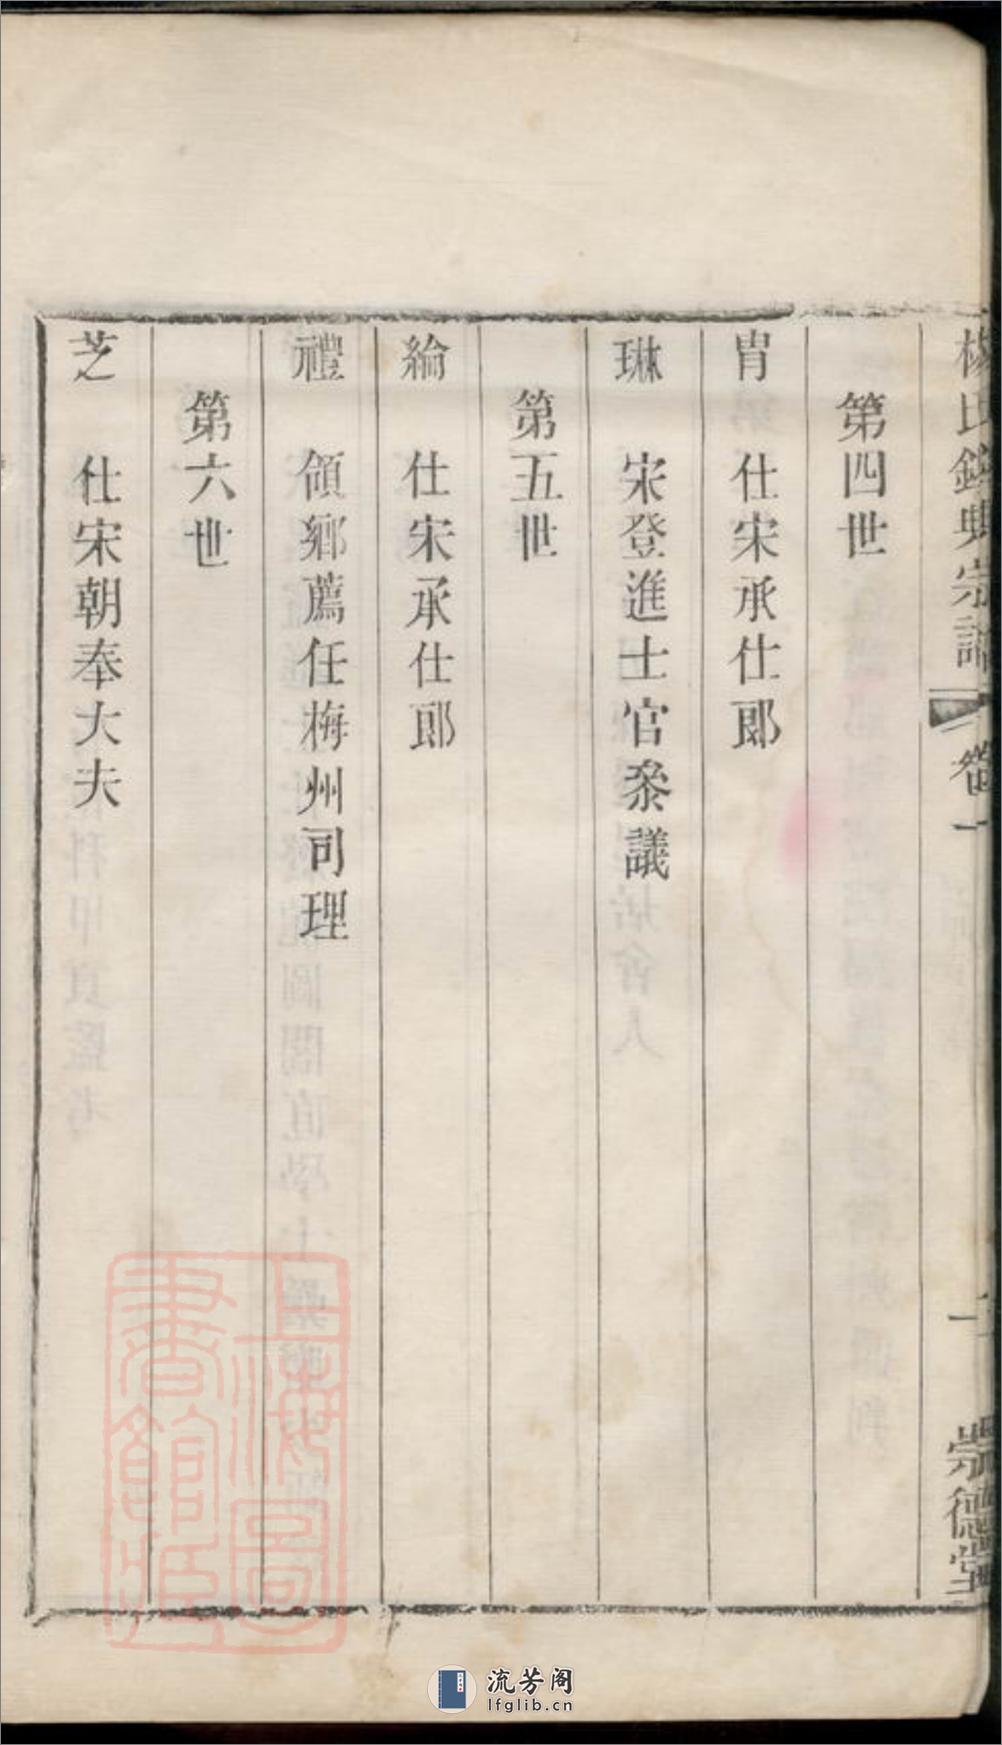 楊氏錄典宗譜 卷一 崇德堂
第四世
胄 仕宋承仕郎
琳 宋登進士官叅議
第五世
綸 仕宋承仕郎
禮 領鄉薦任梅州司理
第六世
芝 仕宋朝奉大夫
上海圖書館藏
流芳阁
lfglib.cn